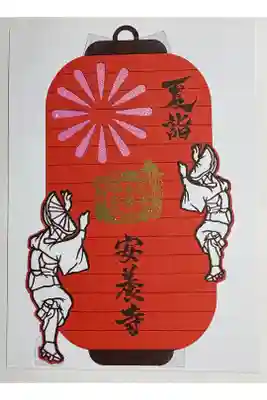 夏詣
安養寺